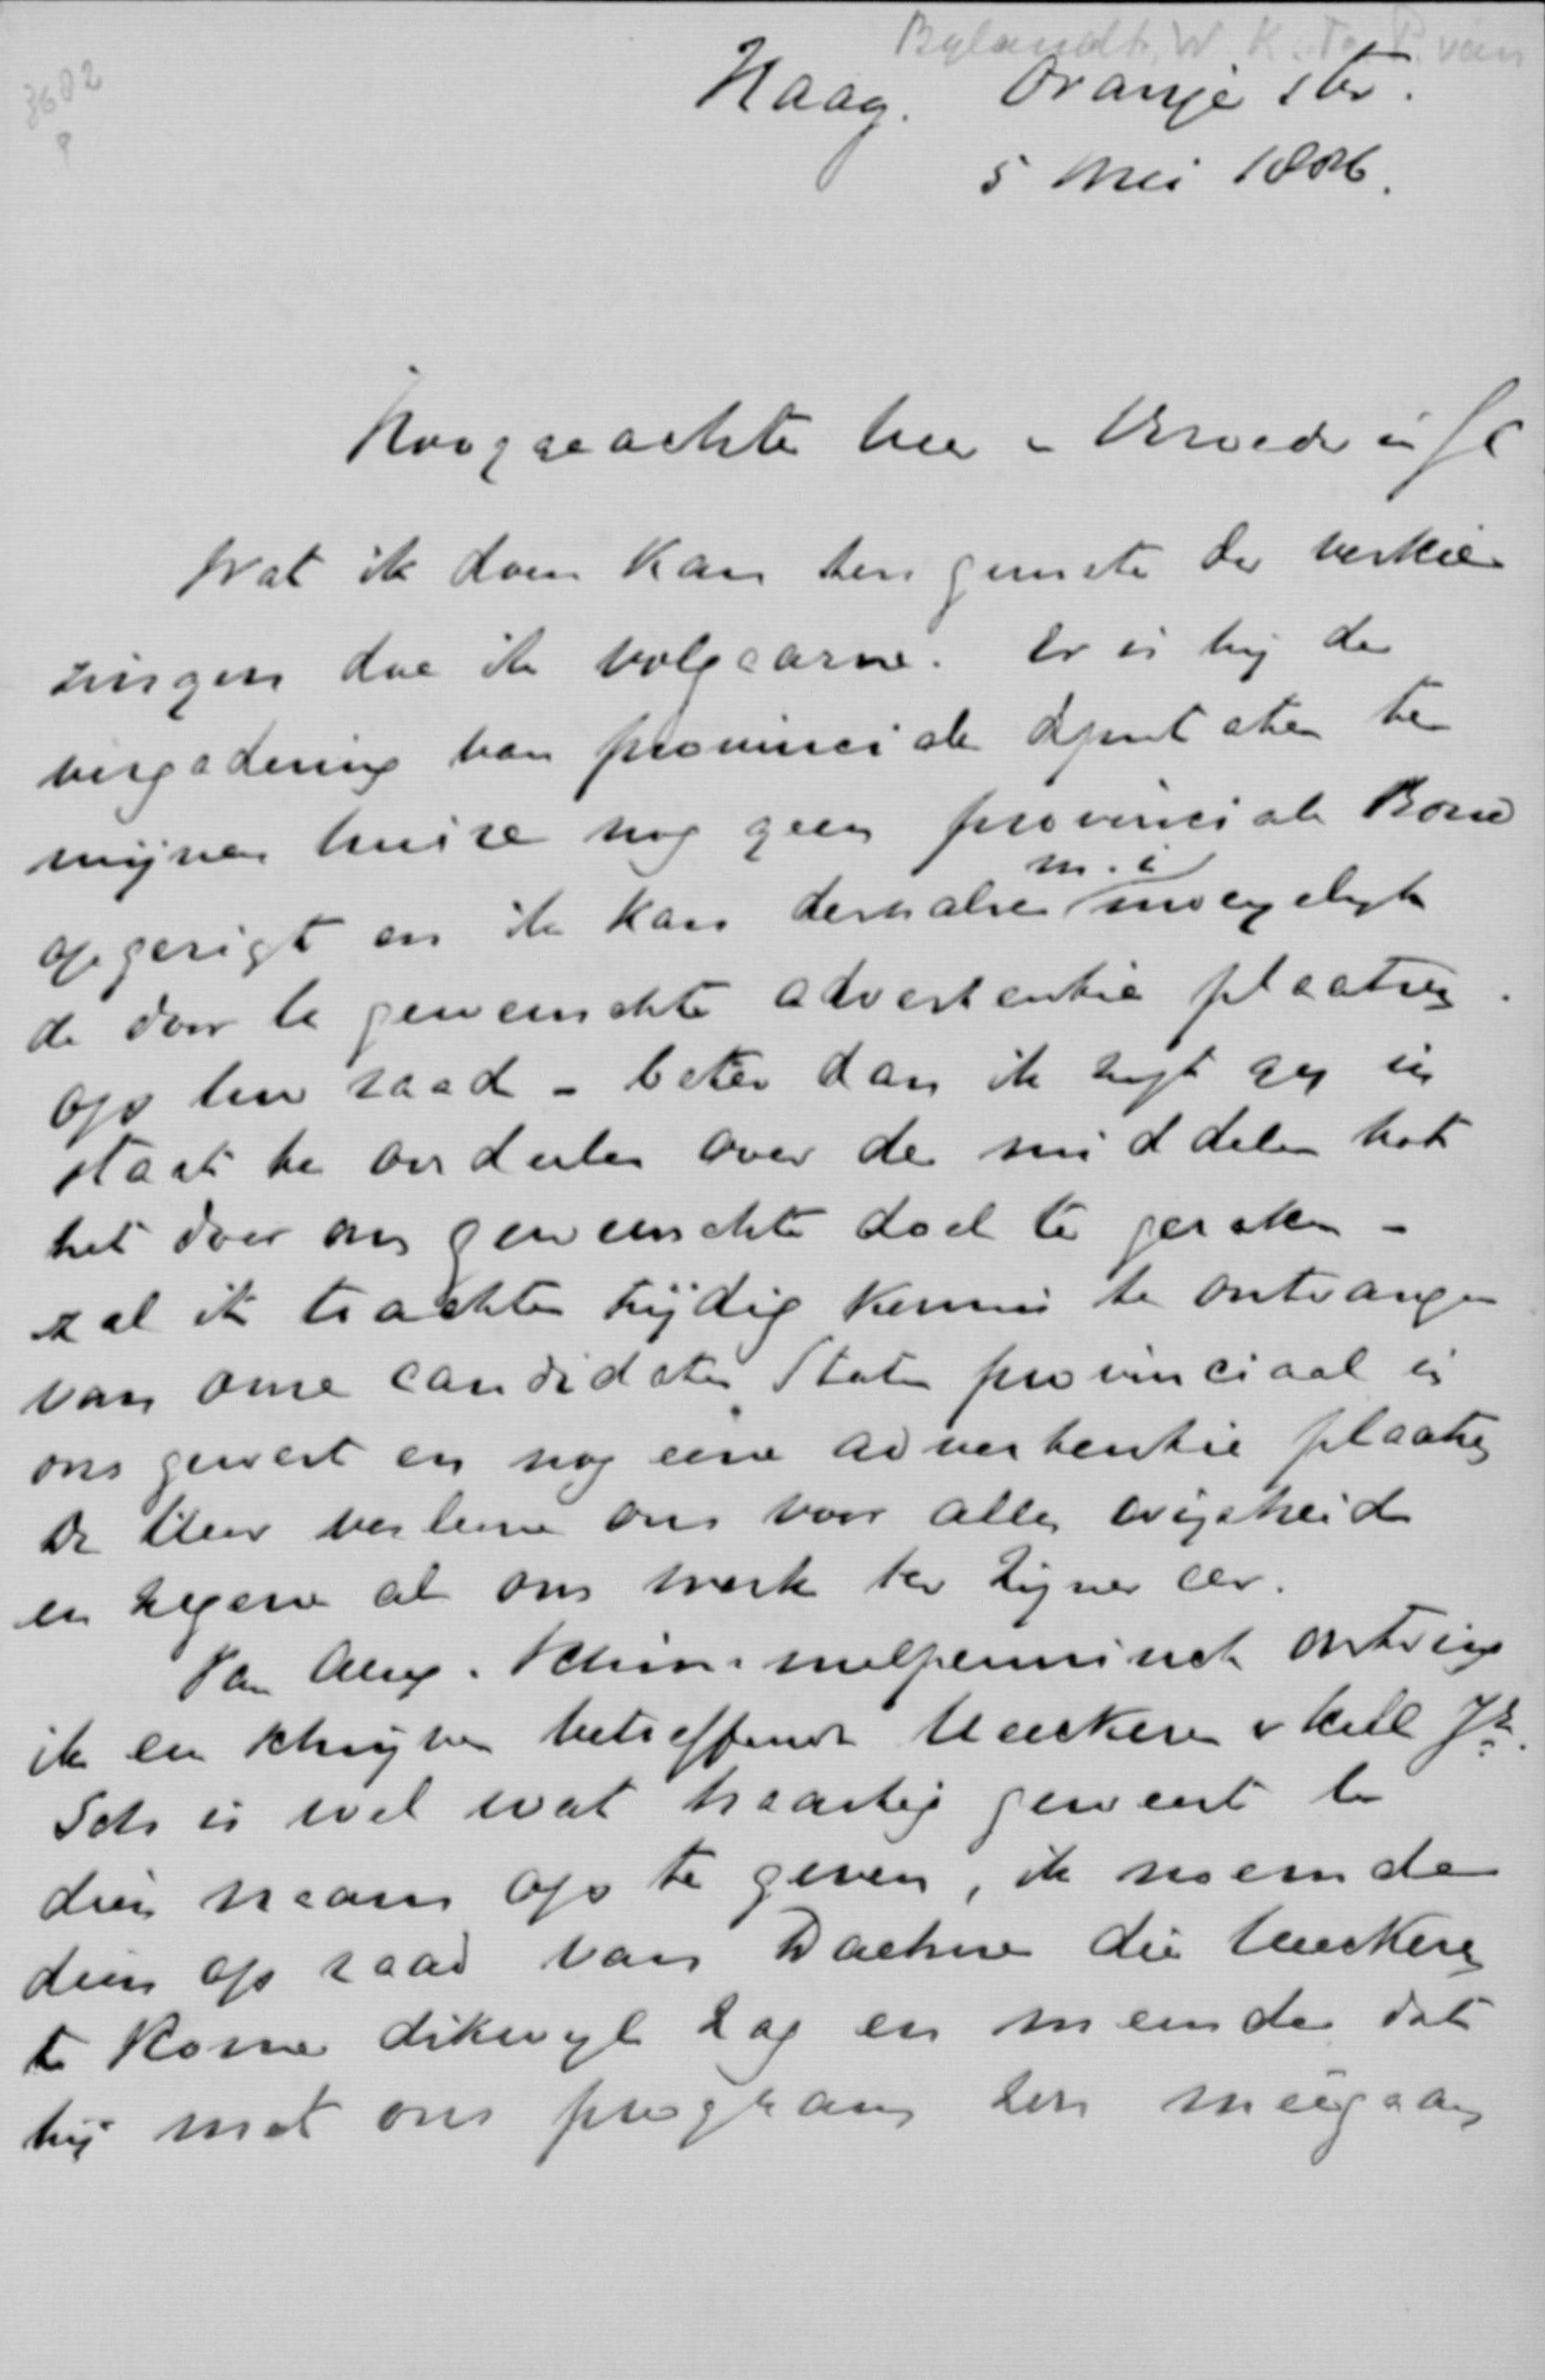 Bylandt, W. K. F. P. van
3602
Haag. Oranje str.
5 Mei 1886.
Hooggeachte heer en Broeder in
Wat ik doen kan ten gunste der verkie
zingen doe ik volgaarne. Er is bij de
vergadering van provinciale deputaten te
mijnen huize nog geen provinciale Bond
m.i.
opgerigt en ik kan dernalve moeyelyk
de door U gewenschte advertentie plaatsen.
Op Uw raad - beter dan ik zyt gy in
staat te oordeelen over de middelen tot
het door ons gewenschte doel te geraken -
zal ik trachten tijdig kennis te ontvangen
van onze candidaten Staten provinciaal in
ons gewest en nog eene advertentie plaatsen
De Heer verleene ons voor alles wijsheid
en zegene al ons werk ter Zijner eer.
Van Alex. Schimmelpenninck ontving
ik een schrijven betreffende Heeckeren v Kell Jr.
Sch is wel wat haastig geweest U
dien naam op te geven, ik noemde
dien op raad van Daehne die Heeckeren
te Rome dikwyls zag en meende dat
hij met ons program zou meegaan